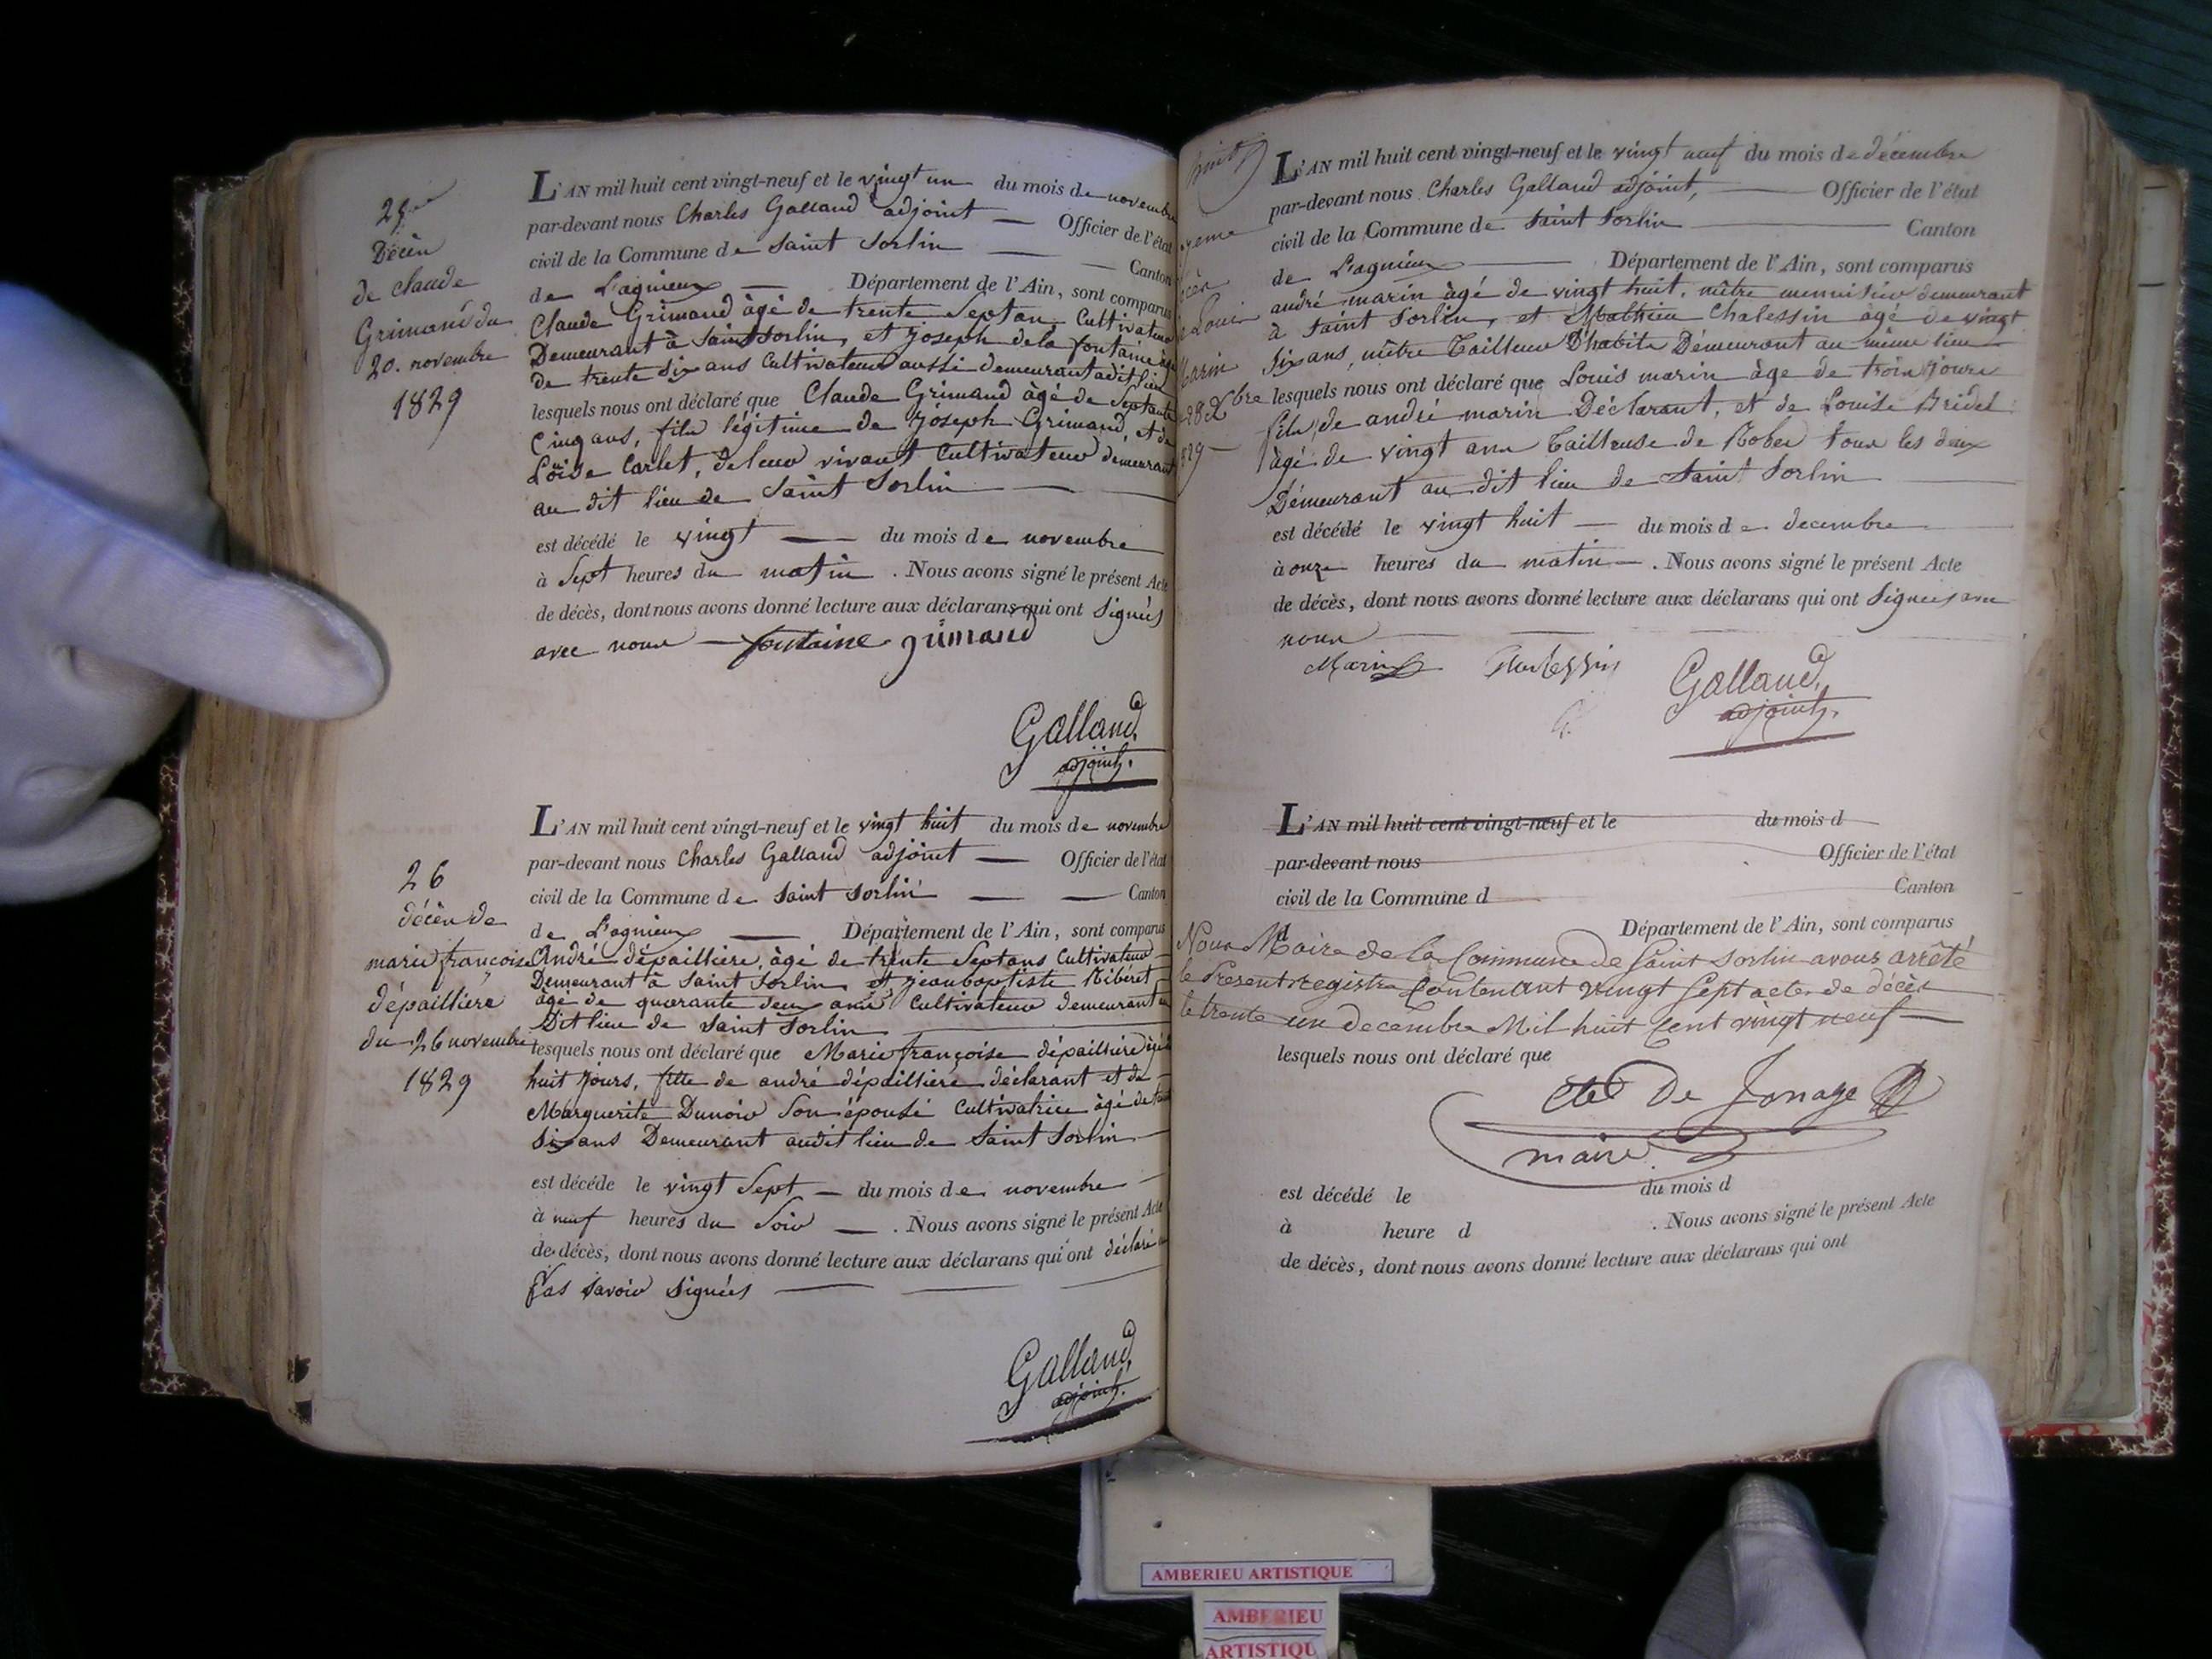 Décès
de claude
Grimand du
20. novembre
1829
L'AN mil huit cent vingt-neuf et le vingt un du mois de novembre
par-devant nous Charles Galland adjoint — Officier de l'état
civil de la Commune de Saint Sorlin — Canton
de Lagnieux — Département de l'Ain, sont comparus
Claude Grimand âgé de trente Sept an Cultivateur
Demeurant à Saint Sorlin, et joseph dela fontaine âgé
de trente six ans Cultivateur aussi demeurant adit lieu
lesquels nous ont déclaré que Claude Grimand âgé de Septante
Cinq ans, fils légitime de Joseph Grimand, et de
Loüise Carlet, de leur vivant Cultivateur demeurant
au dit lieu de Saint Sorlin
est décédé le vingt — du mois de novembre
à Sept heures du matin . Nous avons signé le présent Acte
de décès, dont nous avons donné lecture aux déclarans qui ont Signés
avec nous — fontaine grimand
Galland
adjoint.
26
décès de
marie françoise
dépaillière
du 26 novembre
1829
L'AN mil huit cent vingt-neuf et le vingt huit du mois de novembre
par-devant nous Charles Galland adjoint — Officier de l'état
civil de la Commune de Saint Sorlin — — Canton
de Lagnieux — Département de l'Ain, sont comparus
André dépaillière, âgé de trente Sept ans Cultivateur
Demeurant à Saint Sorlin et jean baptiste Ribéret
âgé de quarante deux ans Cultivateur demeurant
Dit lieu de Saint Sorlin
lesquels nous ont déclaré que Marie françoise dépaillière âgé
huit jours, fille de andré dépaillière déclarant et de
Marguerite Dunoir Son épouse Cultivatrice âgé de
Six ans Demeurant audit lieu de Saint Sorlin
est décédé le vingt Sept — du mois de novembre
à neuf heures du Soir — . Nous avons signé le présent Acte
de décès, dont nous avons donné lecture aux déclarans qui ont déclaré
pas savoir Signés
Galland
adjoint.
Louis
Marin
28 Xbre
L'AN mil huit cent vingt-neuf et le vingt neuf du mois de décembre
par-devant nous Charles Galland adjoint, — Officier de l'état
civil de la Commune de Saint Sorlin — Canton
de Lagnieux — Département de l'Ain, sont comparus
andré marin âgé de vingt huit, mêtre menuisier demeurant
à Saint Sorlin, et Mathieu Chalessin âgé de vingt
Six ans, mêtre Tailleur D'habits Demeurant au même lieu
lesquels nous ont déclaré que Louis marin âge de trois jours
fils de andré marin Déclarant, et de Louise Bridel
âgé de vingt ans Tailleuse de Robes tous les deux
Démeurant au dit lieu de Saint Sorlin
est décédé le vingt huit — du mois de decembre
à onze heures du matin — . Nous avons signé le présent Acte
de décès, dont nous avons donné lecture aux déclarans qui ont Signés avec
nous
Marin Chalessin Galland
adjoint.
L'AN mil huit cent vingt-neuf et le du mois d
par-devant nous Officier de l'état
civil de la Commune d Canton
d Département de l'Ain, sont comparus
Nous Maire de la Commune de Saint Sorlin avons arrêté
le Présent registre Contenant vingt Sept actes de décès
le trente un decembre Mil huit Cent vingt neuf
lesquels nous ont déclaré que
De Jonage
maire
est décédé le du mois d
à heure d . Nous avons signé le présent Acte
de décès, dont nous avons donné lecture aux déclarans qui ont
AMBERIEU ARTISTIQUE
AMBERIEU
ARTISTIQU